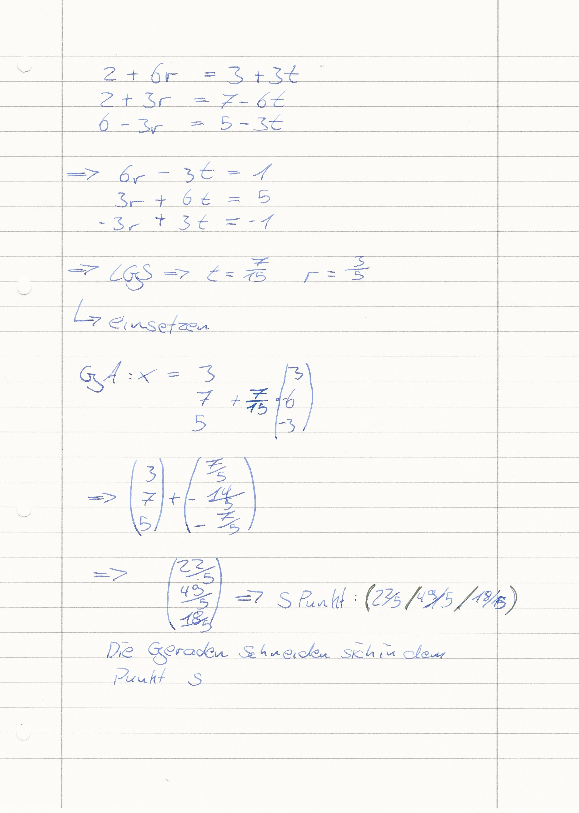 2 + 6r = 3 + 3t
2 + 3r = 7 - 6t
6 - 3r = 5 - 3t
=> 6r - 3t = 1
3r + 6t = 5
-3r + 3t = -1
=> LGS => t = 7/15 r = 3/5
↳ einsetzen
GgA : x = 3 3
7 + 7/15 · -6
5 -3
=> (3 7 5) + (7/5 - 14/5 - 7/5)
=> (22/5 49/5 18/5) => S Punkt : (22/5 / 49/5 / 18/5)
Die Geraden schneiden sich in dem
Punkt S